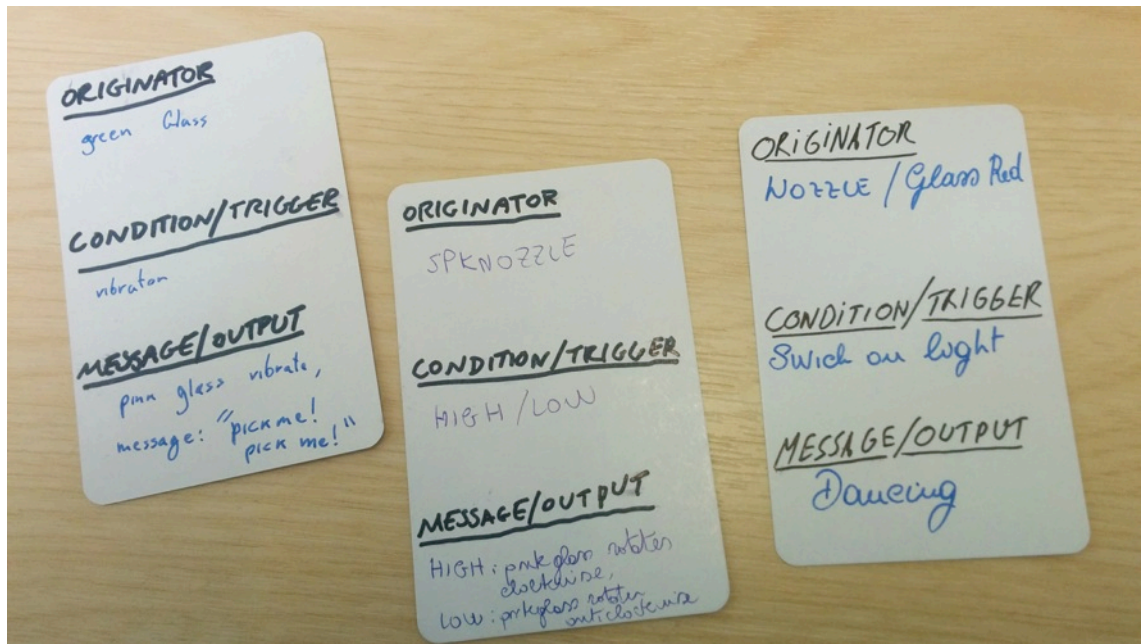 ORIGINATOR
green Glass
CONDITION/TRIGGER
vibraton
MESSAGE/OUTPUT
pink glass vibrate,
message: "pick me!
pick me!"
ORIGINATOR
SPKNOZZLE
CONDITION/TRIGGER
HIGH/LOW
MESSAGE/OUTPUT
HIGH: pink glass rotates
clockwise,
LOW: pink glass rotates
anticlockwise
ORIGINATOR
NOZZLE / Glass Red
CONDITION/TRIGGER
Swich on light
MESSAGE/OUTPUT
Dancing